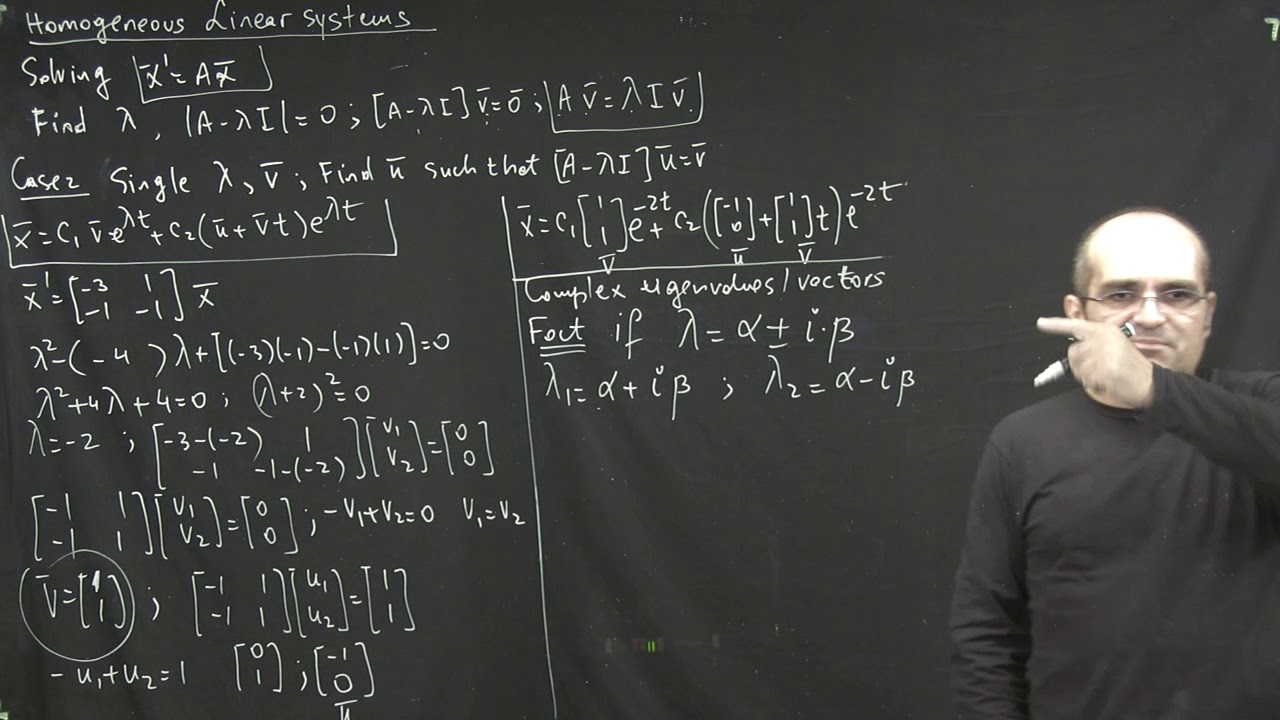 Homogeneous Linear systems
Solving x̄' = Ax̄
Find λ, |A-λI| = 0 ; [A-λI] v̄ = ō ; A v̄ = λ I v̄
Case2 Single λ, v̄ ; Find ū such that [A-λI] ū = v̄
x̄ = C₁ v̄ e^{λt} + C₂ (ū + v̄t) e^{λt}
x̄' = [-3 1; -1 -1] x̄
λ² - (-4 ) λ + [(-3)(-1) - (-1)(1)] = 0
λ² + 4λ + 4 = 0 ; (λ+2)² = 0
λ = -2 ; [-3-(-2) 1; -1 -1-(-2)] [v₁; v₂] = [0; 0]
[-1 1; -1 1] [v₁; v₂] = [0; 0] ; -v₁ + v₂ = 0 v₁ = v₂
v̄ = [1; 1] ; [-1 1; -1 1] [u₁; u₂] = [1; 1]
-u₁ + u₂ = 1 [0; 1] ; [-1; 0]
ū
x̄ = C₁ [1; 1] e^{-2t} + C₂ ([-1; 0] + [1; 1] t) e^{-2t}
v̄ ū v̄
Complex eigenvalues/vectors
Fact if λ = α ± i·β
λ₁ = α + iβ ; λ₂ = α - iβ
7